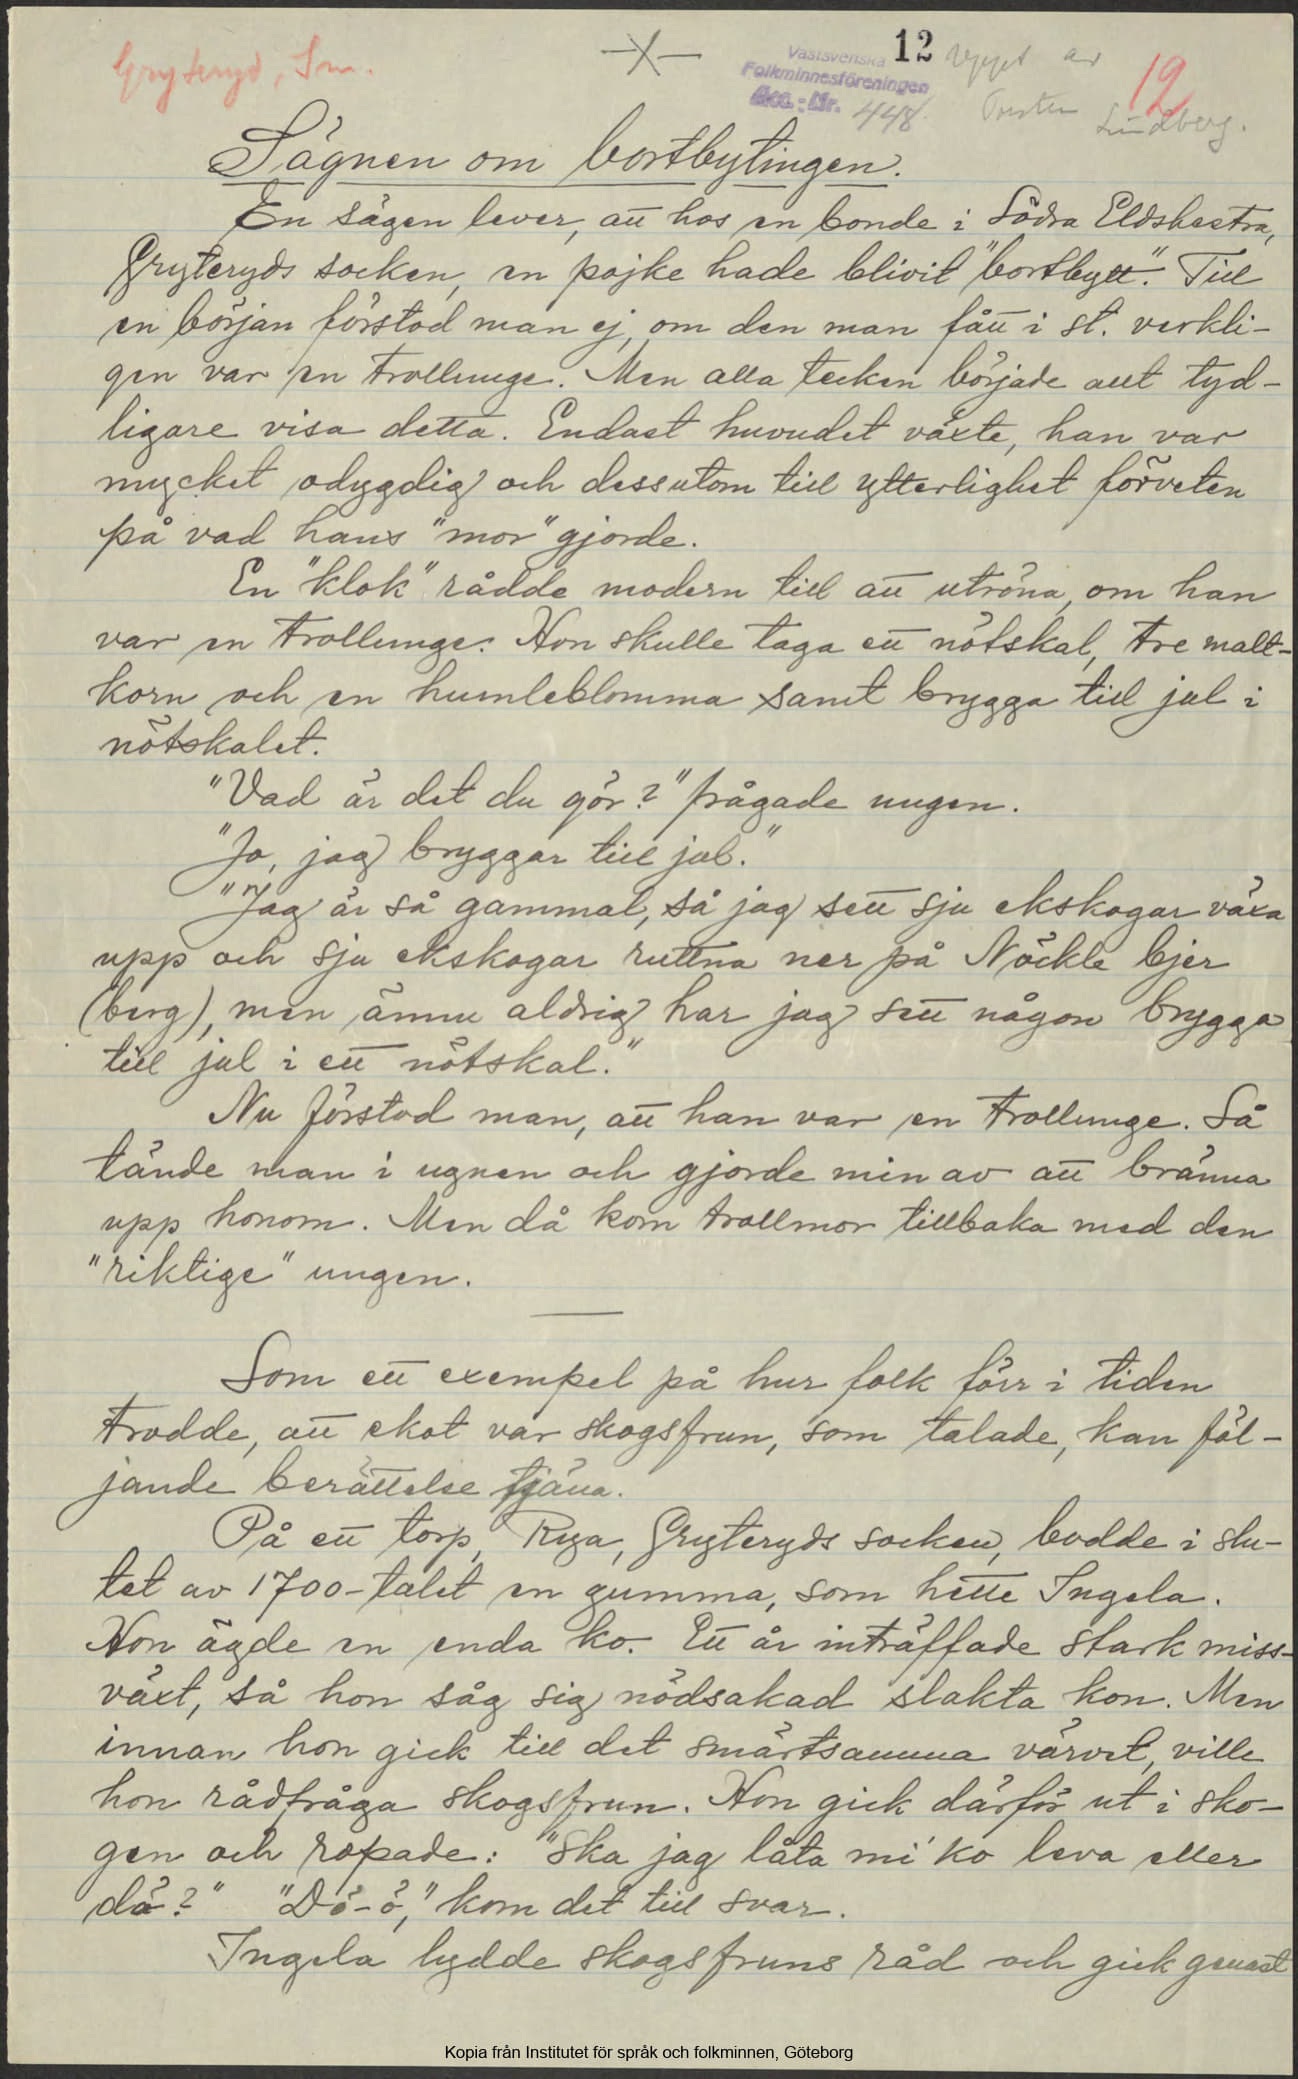 Gryteryd, Sm.
12
Västsvenska
Folkminnesföreningen
Acc.-Nr. 448
Uppt av
Torsten Lindberg.
12
Sägnen om bortbytingen.
En sägen lever, att hos en bonde i Södra Eldshestra,
Gryteryds socken, en pojke hade blivit "bortbytt". Till
en början förstod man ej, om den man fått i st. verkli-
gen var en trollunge. Men alla tecken började allt tyd-
ligare visa detta. Endast huvudet växte, han var
mycket odygdig och dessutom till ytterlighet förveten
på vad hans "mor" gjorde.
En "klok" rådde modern till att utröna, om han
var en trollunge: Hon skulle taga ett nötskal, tre malt-
korn och en humleblomma samt brygga till jul i
nötskalet.
"Vad är det du gör?" frågade ungen.
"Jo, jag bryggar till jul."
"Jag är så gammal, så jag sett sju ekskogar växa
upp och sju ekskogar ruttna ner på Nöckle bjer
(berg), men ännu aldrig har jag sett någon brygga
till jul i ett nötskal."
Nu förstod man, att han var en trollunge. Så
tände man i ugnen och gjorde min av att bränna
upp honom. Men då kom trollmor tillbaka med den
"riktige" ungen.
Som ett exempel på hur folk förr i tiden
trodde, att ekot var skogsfrun, som talade, kan föl-
jande berättelse tjäna.
På ett torp, Rya, Gryteryds socken, bodde i slu-
tet av 1700-talet en gumma, som hette Ingela.
Hon ägde en enda ko. Ett år inträffade stark miss-
växt, så hon såg sig nödsakad slakta kon. Men
innan hon gick till det smärtsamma värvet, ville
hon rådfråga skogsfrun. Hon gick därför ut i sko-
gen och ropade: "Ska jag låta mi' ko leva eller
dö?" "Dö-ö," kom det till svar.
Ingela lydde skogsfruns råd och gick genast
Kopia från Institutet för språk och folkminnen, Göteborg